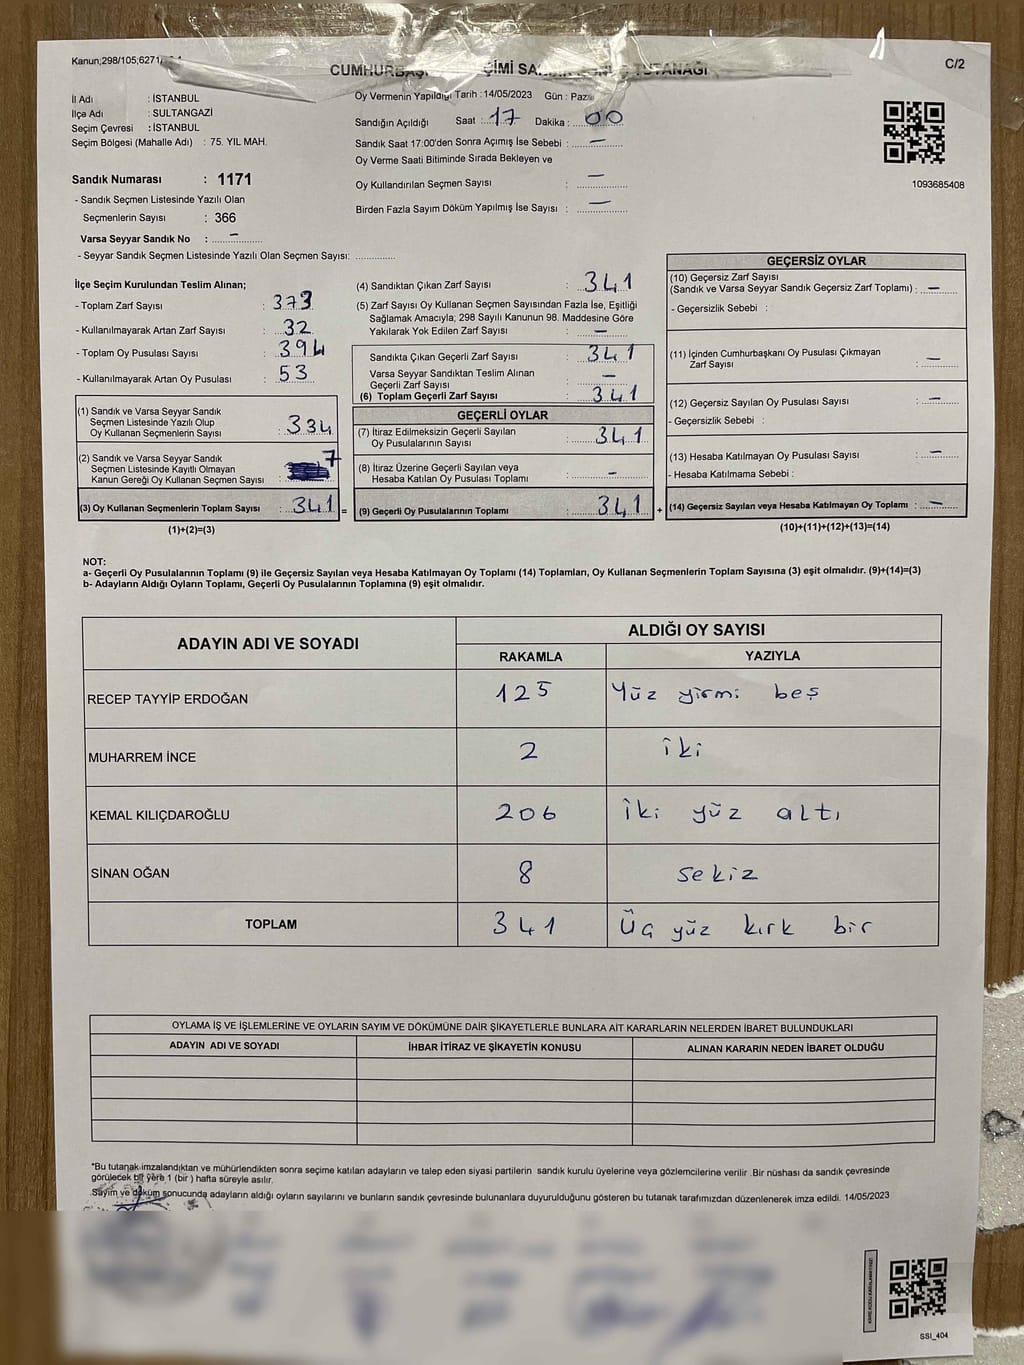 Kanun;298/105;6271/
C/2
İl Adı : İSTANBUL
İlçe Adı : SULTANGAZİ
Seçim Çevresi : İSTANBUL
Seçim Bölgesi (Mahalle Adı) : 75. YIL MAH.
Oy Vermenin Yapıldığı Tarih :14/05/2023 Gün :
Sandığın Açıldığı Saat : 17 Dakika : 00
Sandık Saat 17:00'den Sonra Açımış İse Sebebi : —
Oy Verme Saati Bitiminde Sırada Bekleyen ve
Oy Kullandırılan Seçmen Sayısı : —
Birden Fazla Sayım Döküm Yapılmış İse Sayısı : —
1093685408
Sandık Numarası : 1171
- Sandık Seçmen Listesinde Yazılı Olan
Seçmenlerin Sayısı : 366
Varsa Seyyar Sandık No : —
- Seyyar Sandık Seçmen Listesinde Yazılı Olan Seçmen Sayısı: ..............
İlçe Seçim Kurulundan Teslim Alınan;
- Toplam Zarf Sayısı : 373
- Kullanılmayarak Artan Zarf Sayısı : 32
- Toplam Oy Pusulası Sayısı : 394
- Kullanılmayarak Artan Oy Pusulası : 53
(1) Sandık ve Varsa Seyyar Sandık
Seçmen Listesinde Yazılı Olup
Oy Kullanan Seçmenlerin Sayısı : 334
(2) Sandık ve Varsa Seyyar Sandık
Seçmen Listesinde Kayıtlı Olmayan
Kanun Gereği Oy Kullanan Seçmen Sayısı : 7
(3) Oy Kullanan Seçmenlerin Toplam Sayısı : 341 =
(1)+(2)=(3)
(4) Sandıktan Çıkan Zarf Sayısı : 341
(5) Zarf Sayısı Oy Kullanan Seçmen Sayısından Fazla İse, Eşitliği
Sağlamak Amacıyla; 298 Sayılı Kanunun 98. Maddesine Göre
Yakılarak Yok Edilen Zarf Sayısı : —
Sandıkta Çıkan Geçerli Zarf Sayısı : 341
Varsa Seyyar Sandıktan Teslim Alınan
Geçerli Zarf Sayısı : —
(6) Toplam Geçerli Zarf Sayısı : 341
GEÇERLİ OYLAR
(7) İtiraz Edilmeksizin Geçerli Sayılan
Oy Pusulalarının Sayısı : 341
(8) İtiraz Üzerine Geçerli Sayılan veya
Hesaba Katılan Oy Pusulası Toplamı : —
(9) Geçerli Oy Pusulalarının Toplamı : 341 +
GEÇERSİZ OYLAR
(10) Geçersiz Zarf Sayısı
(Sandık ve Varsa Seyyar Sandık Geçersiz Zarf Toplamı) : —
- Geçersizlik Sebebi :
(11) İçinden Cumhurbaşkanı Oy Pusulası Çıkmayan
Zarf Sayısı : —
(12) Geçersiz Sayılan Oy Pusulası Sayısı : —
- Geçersizlik Sebebi :
(13) Hesaba Katılmayan Oy Pusulası Sayısı : —
- Hesaba Katılmama Sebebi :
(14) Geçersiz Sayılan veya Hesaba Katılmayan Oy Toplamı : —
(10)+(11)+(12)+(13)=(14)
NOT:
a- Geçerli Oy Pusulalarının Toplamı (9) ile Geçersiz Sayılan veya Hesaba Katılmayan Oy Toplamı (14) Toplamları, Oy Kullanan Seçmenlerin Toplam Sayısına (3) eşit olmalıdır. (9)+(14)=(3)
b- Adayların Aldığı Oyların Toplamı, Geçerli Oy Pusulalarının Toplamına (9) eşit olmalıdır.
ADAYIN ADI VE SOYADI ALDIĞI OY SAYISI
RAKAMLA YAZIYLA
RECEP TAYYİP ERDOĞAN 125 Yüz yirmi beş
MUHARREM İNCE 2 iki
KEMAL KILIÇDAROĞLU 206 iki yüz altı
SİNAN OĞAN 8 sekiz
TOPLAM 341 Üç yüz kırk bir
OYLAMA İŞ VE İŞLEMLERİNE VE OYLARIN SAYIM VE DÖKÜMÜNE DAİR ŞİKAYETLERLE BUNLARA AİT KARARLARIN NELERDEN İBARET BULUNDUKLARI
ADAYIN ADI VE SOYADI İHBAR İTİRAZ VE ŞİKAYETİN KONUSU ALINAN KARARIN NEDEN İBARET OLDUĞU
*Bu tutanak imzalandıktan ve mühürlendikten sonra seçime katılan adayların ve talep eden siyasi partilerin sandık kurulu üyelerine veya gözlemcilerine verilir .Bir nüshası da sandık çevresinde
görülecek bir yere 1 (bir ) hafta süreyle asılır.
Sayım ve döküm sonucunda adayların aldığı oyların sayılarını ve bunların sandık çevresinde bulunanlara duyurulduğunu gösteren bu tutanak tarafımızdan düzenlenerek imza edildi. 14/05/2023
SSI_404